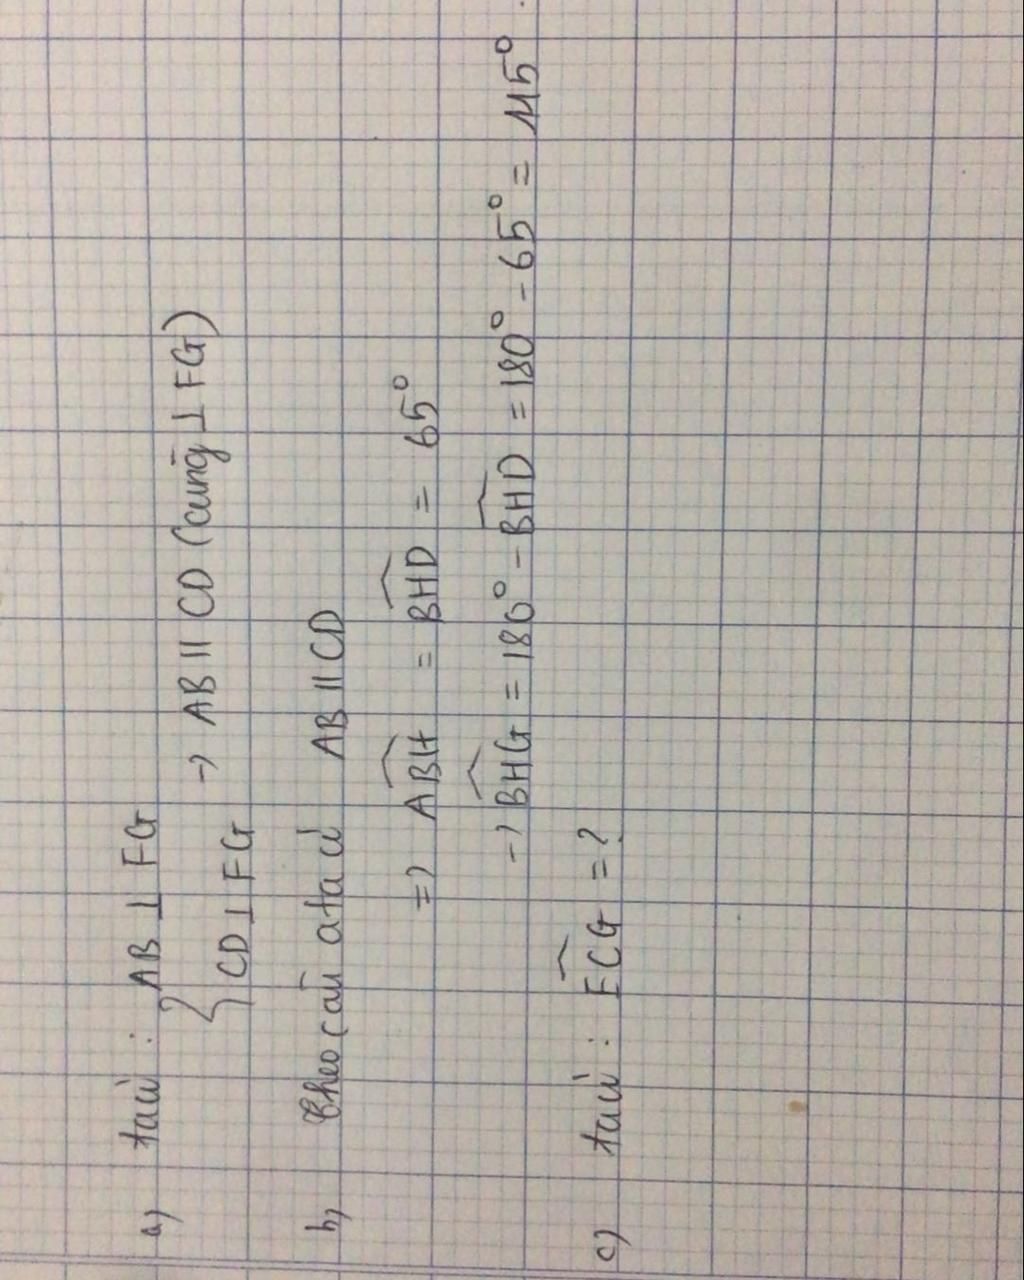 a) ta có : AB ⊥ FG
CD ⊥ FG → AB // CD (cùng ⊥ FG)
b) Theo câu a ta có AB // CD
=> ABH = BHD = 65°
→ BHG = 180° - BHD = 180° - 65° = 115°
c) ta có : FCG = ?